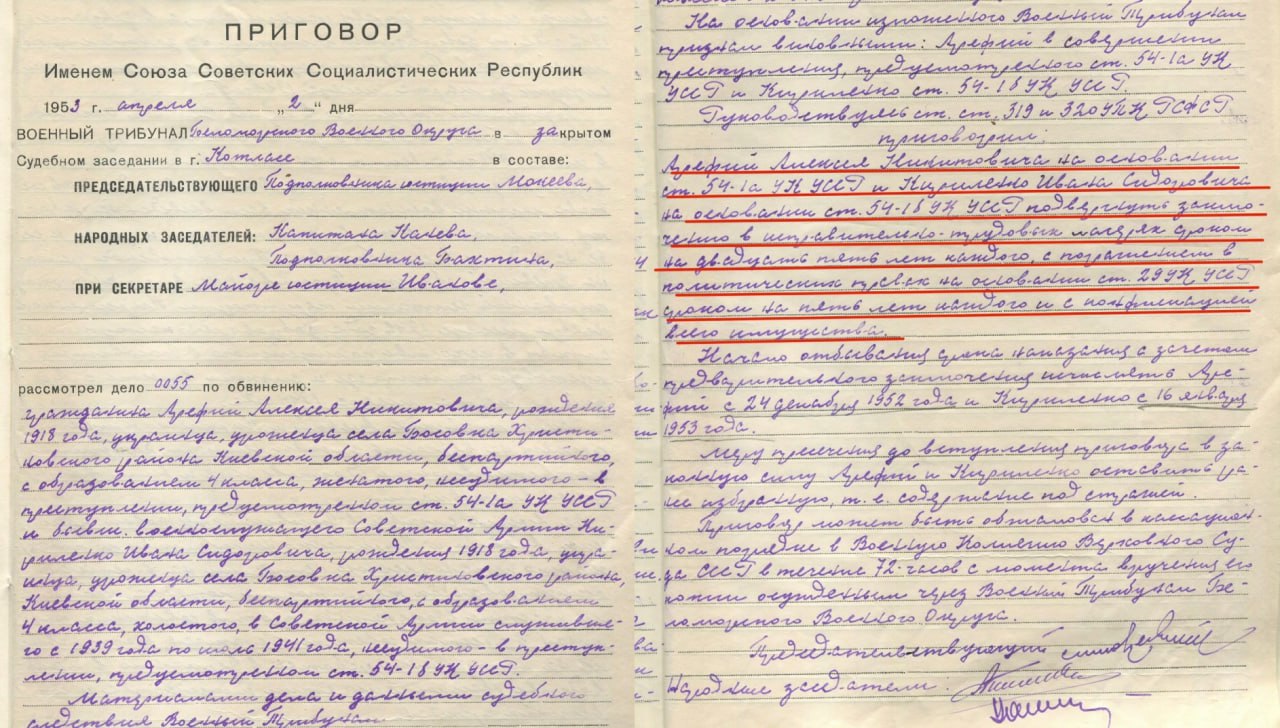 ПРИГОВОР
Именем Союза Советских Социалистических Республик
1953 г. апреля „2“ дня
ВОЕННЫЙ ТРИБУНАЛ Беломорского Военного Округа в закрытом
Судебном заседании в г. Котласе в составе:
ПРЕДСЕДАТЕЛЬСТВУЮЩЕГО Подполковника юстиции Мокеева,
НАРОДНЫХ ЗАСЕДАТЕЛЕЙ: Капитана
Подполковника Бахтина,
ПРИ СЕКРЕТАРЕ Майоре юстиции Иванове,
рассмотрел дело 0055 по обвинению:
гражданина Арефий Алексея Никитовича, рождения
1918 года, украинца, уроженца села Босовка Христи-
новского района Киевской области, беспартийного,
с образованием 4 класса, женатого, несудимого – в
преступлении, предусмотренном ст. 54-1а УК УССР
и бывш. военнослужащего Советской Армии Ки-
риленко Ивана Сидоровича, рождения 1918 года, укра-
инца, уроженца села Босовка Христиновского района,
Киевской области, беспартийного, с образованием
4 класса, холостого, в Советской Армии служивше-
го с 1939 года по июль 1941 года, несудимого – в преступ-
лении, предусмотренном ст. 54-1б УК УССР.
Материалами дела и данными судебного
следствия Военный Трибунал
На основании изложенного Военный Трибунал
признал виновными: Арефий в совершении
преступления, предусмотренного ст. 54-1а УК
УССР и Кириленко ст. 54-1б УК УССР.
Руководствуясь ст. ст. 319 и 320 УПК РСФСР
приговорил:
Арефий Алексея Никитовича на основании
ст. 54-1а УК УССР и Кириленко Ивана Сидоровича
на основании ст. 54-1б УК УССР подвергнуть заклю-
чению в исправительно-трудовых лагерях сроком
на двадцать пять лет каждого, с поражением в
политических правах на основании ст. 29 УК УССР
сроком на пять лет каждого и с конфискацией
всего имущества.
Начало отбывания срока наказания с зачетом
предварительного заключения исчислять Аре-
фий с 24 декабря 1952 года и Кириленко с 16 января
1953 года.
Меру пресечения до вступления приговора в за-
конную силу Арефий и Кириленко оставить ра-
нее избранную, т. е. содержание под стражей.
Приговор может быть обжалован в кассацион-
ном порядке в Военную Коллегию Верховного Су-
да СССР в течение 72-часов с момента вручения его
копии осужденным через Военный Трибунал Бе-
ломорского Военного Округа.
Председательствующий
Народные заседатели